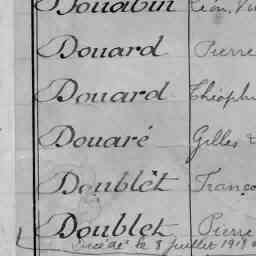 Douabin Léon, Vi
Douard Pierre
Douard Théophi
Douaré Gilles &
Doublèt Franço
Doublet Pierre
Décédé le 8 juillet 1918